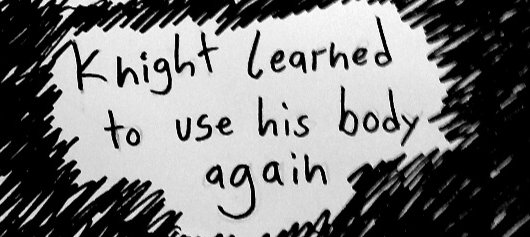 Knight learned
to use his body
again